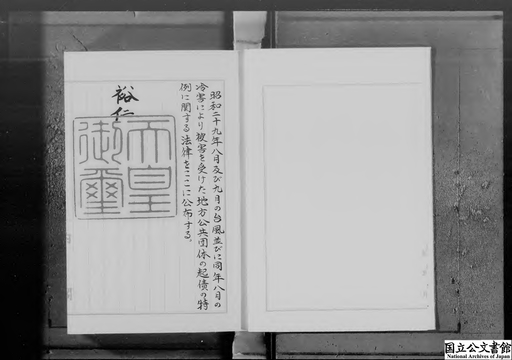 昭和二十九年八月及び九月の台風並びに同年八月の
冷害により被害を受けた地方公共団体の起債の特
例に関する法律をここに公布する。
裕仁
天皇
御璽
国立公文書館
National Archives of Japan